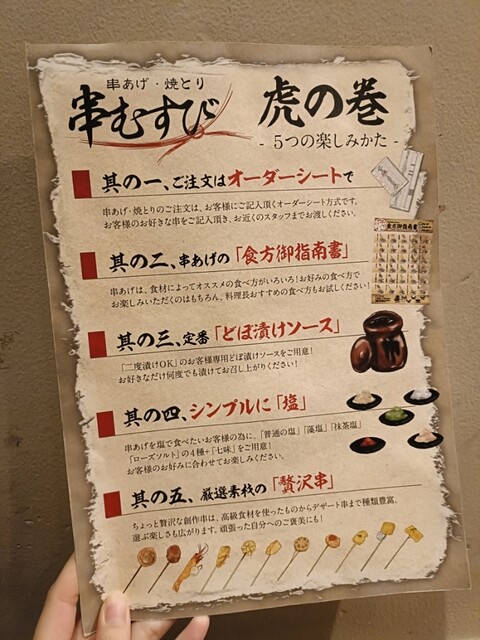 串あげ・焼とり
串むすび
虎の巻
- 5つの楽しみかた -
其の一、ご注文はオーダーシートで
串あげ・焼とりのご注文は、お客様にご記入頂くオーダーシート方式です。
お客様のお好きな串をご記入頂き、お近くのスタッフまでお渡しください。
其の二、串あげの「食方御指南書」
串あげは、食材によってオススメの食べ方がいろいろ!お好みの食べ方で
お楽しみいただくのはもちろん、料理長おすすめの食べ方もお試しください!
食方御指南書
其の三、定番「どぼ漬けソース」
「二度漬けOK」のお客様専用どぼ漬けソースをご用意!
お好きなだけ何度でも漬けてお召し上がりください!
其の四、シンプルに「塩」
串あげを塩で食べたいお客様の為に、「普通の塩」「藻塩」「抹茶塩」
「ローズソルト」の4種+「七味」をご用意!
お客様のお好みに合わせてお楽しみください。
其の五、厳選素材の「贅沢串」
ちょっと贅沢な創作串は、高級食材を使ったものからデザート串まで種類豊富。
選ぶ楽しさも広がります。頑張った自分へのご褒美にも!